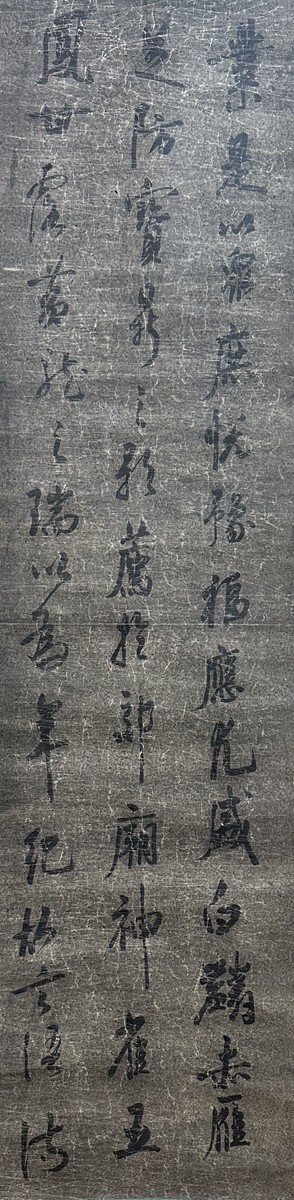 業是以眾庶悅豫福應尤盛白麟赤雁
芝房寶鼎之歌薦於郊廟神雀五
鳳甘露黃龍之瑞以為年紀故言語侍